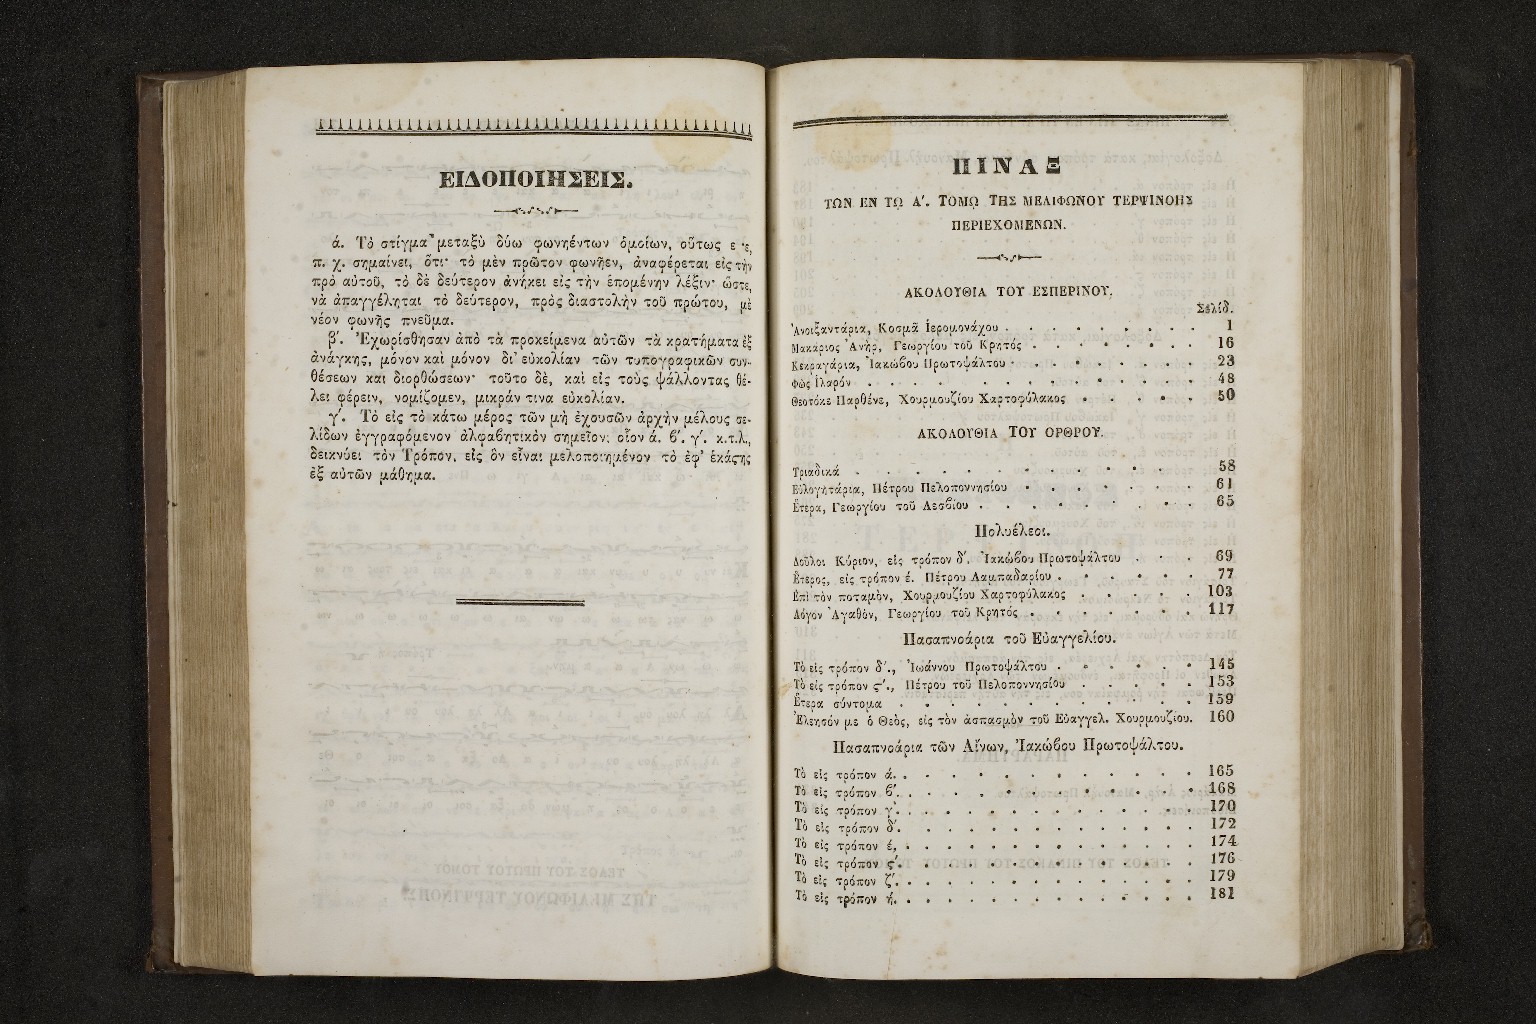 ΕΙΔΟΠΟΙΗΣΕΙΣ.
ά. Τὸ στίγμα μεταξὺ δύω φωνηέντων ὁμοίων, οὕτως ε ε,
π. χ. σημαίνει, ὅτι· τὸ μὲν πρῶτον φωνῆεν, ἀναφέρεται εἰς τὴν
πρὸ αὐτοῦ, τὸ δὲ δεύτερον ἀνήκει εἰς τὴν ἑπομένην λέξιν· ὥστε,
νὰ ἀπαγγέληται τὸ δεύτερον, πρὸς διαστολὴν τοῦ πρώτου, μὲ
νέον φωνῆς πνεῦμα.
β΄. Ἐχωρίσθησαν ἀπὸ τὰ προκείμενα αὐτῶν τὰ κρατήματα ἐξ
ἀνάγκης, μόνον καὶ μόνον δι᾽ εὐκολίαν τῶν τυπογραφικῶν συν-
θέσεων καὶ διορθώσεων· τοῦτο δὲ, καὶ εἰς τοὺς ψάλλοντας θέ-
λει φέρειν, νομίζομεν, μικράν τινα εὐκολίαν.
γ΄. Τὸ εἰς τὸ κάτω μέρος τῶν μὴ ἐχουσῶν ἀρχὴν μέλους σε-
λίδων ἐγγραφόμενον ἀλφαβητικὸν σημεῖον; οἷον ά. β΄. γ΄. κ.τ.λ.,
δεικνύει τὸν Τρόπον, εἰς ὃν εἶναι μελοποιημένον τὸ ἐφ᾽ ἑκάϛης
ἐξ αὐτῶν μάθημα.
ΠΙΝΑΞ
ΤΩΝ ΕΝ ΤΩ Α΄. ΤΟΜΩ ΤΗΣ ΜΕΛΙΦΩΝΟΥ ΤΕΡΨΙΝΟΗΣ
ΠΕΡΙΕΧΟΜΕΝΩΝ.
ΑΚΟΛΟΥΘΙΑ ΤΟΥ ΕΣΠΕΡΙΝΟΥ.
Σελίδ.
Ἀνοιξαντάρια, Κοσμᾶ Ἱερομονάχου . . . . . . . . . 1
Μακάριος Ἀνὴρ, Γεωργίου τοῦ Κρητός . . . . . . . 16
Κεκραγάρια, Ἰακώβου Πρωτοψάλτου . . . . . . . . 23
Φῶς Ἱλαρόν . . . . . . . . . . . . . 48
Θεοτόκε Παρθένε, Χουρμουζίου Χαρτοφύλακος . . . . . 50
ΑΚΟΛΟΥΘΙΑ ΤΟΥ ΟΡΘΡΟΥ.
Τριαδικά . . . . . . . . . . . . . 58
Εὐλογητάρια, Πέτρου Πελοποννησίου . . . . . . . 61
Ἕτερα, Γεωργίου τοῦ Λεσβίου . . . . . . . . 65
Πολυέλεοι.
Δοῦλοι Κύριον, εἰς τρόπον δ΄. Ἰακώβου Πρωτοψάλτου . . . 69
Ἕτερος, εἰς τρόπον έ. Πέτρου Λαμπαδαρίου . . . . . . 77
Ἐπὶ τὸν ποταμὸν, Χουρμουζίου Χαρτοφύλακος . . . . . 103
Λόγον Ἀγαθὸν, Γεωργίου τοῦ Κρητός . . . . . . . 117
Πασαπνοάρια τοῦ Εὐαγγελίου.
Τὸ εἰς τρόπον δ΄., Ἰωάννου Πρωτοψάλτου . . . . . . 145
Τὸ εἰς τρόπον ϛ΄., Πέτρου τοῦ Πελοποννησίου . . . . . 153
Ἕτερα σύντομα . . . . . . . . . . . . 159
Ἐλεησόν με ὁ Θεὸς, εἰς τὸν ἀσπασμὸν τοῦ Εὐαγγελ. Χουρμουζίου. 160
Πασαπνοάρια τῶν Αἴνων, Ἰακώβου Πρωτοψάλτου.
Τὸ εἰς τρόπον ά. . . . . . . . . . . . . 165
Τὸ εἰς τρόπον β΄. . . . . . . . . . . . . 168
Τὸ εἰς τρόπον γ΄. . . . . . . . . . . . . 170
Τὸ εἰς τρόπον δ΄. . . . . . . . . . . . . 172
Τὸ εἰς τρόπον έ. . . . . . . . . . . . . 174
Τὸ εἰς τρόπον ϛ΄. . . . . . . . . . . . . 176
Τὸ εἰς τρόπον ζ΄. . . . . . . . . . . . . 179
Τὸ εἰς τρόπον ή. . . . . . . . . . . . . 181